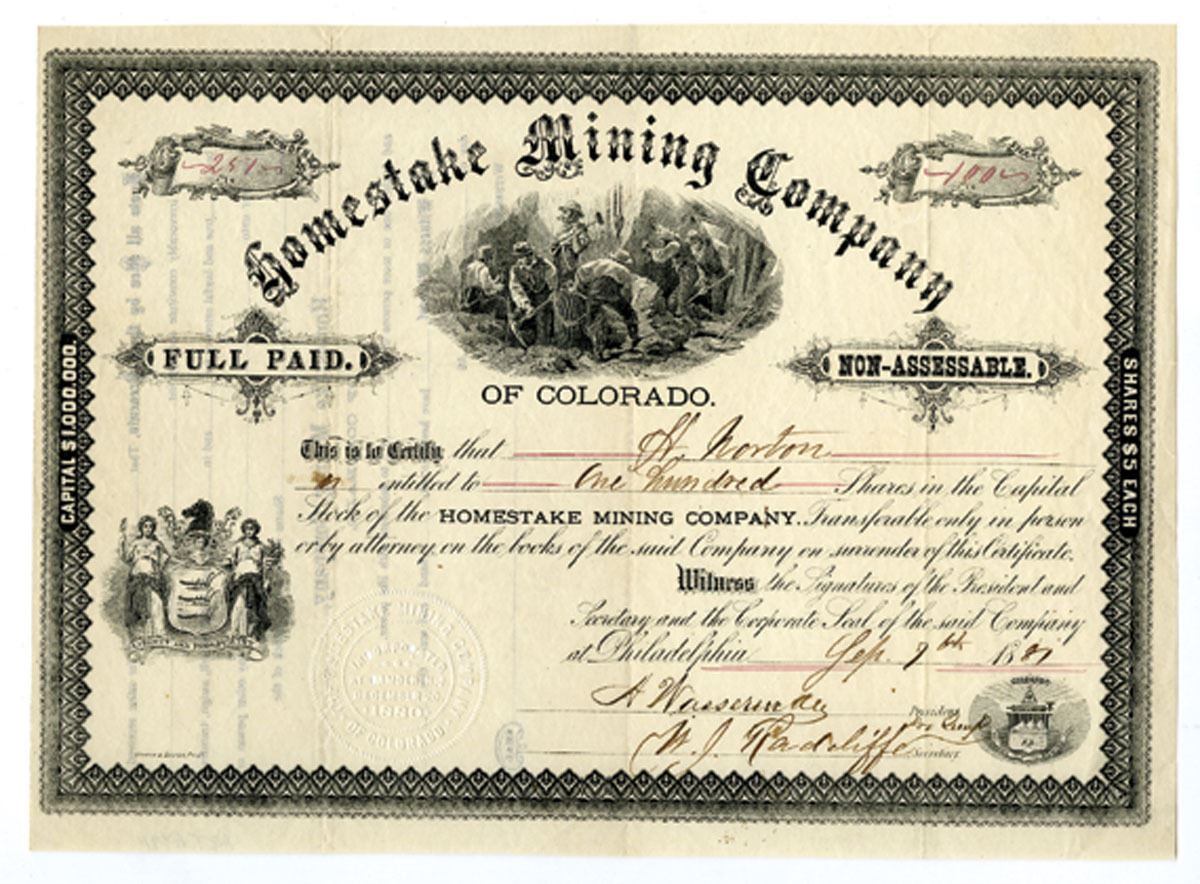 251
100
Homestake Mining Company
FULL PAID.
NON-ASSESSABLE.
OF COLORADO.
CAPITAL $1,000,000.
SHARES $5 EACH
This is to Certify that H. Norton
is entitled to One Hundred Shares in the Capital
Stock of the HOMESTAKE MINING COMPANY. Transferable only in person
or by attorney, on the books of the said Company on surrender of this Certificate.
Witness the Signatures of the President and
Secretary and the Corporate Seal of the said Company
at Philadelphia Sep. 7th 1881
President
W. J. Radcliffe Secretary
HOMESTAKE MINING COMPANY
INCORPORATED
DECEMBER
1880
OF COLORADO
COLORADO